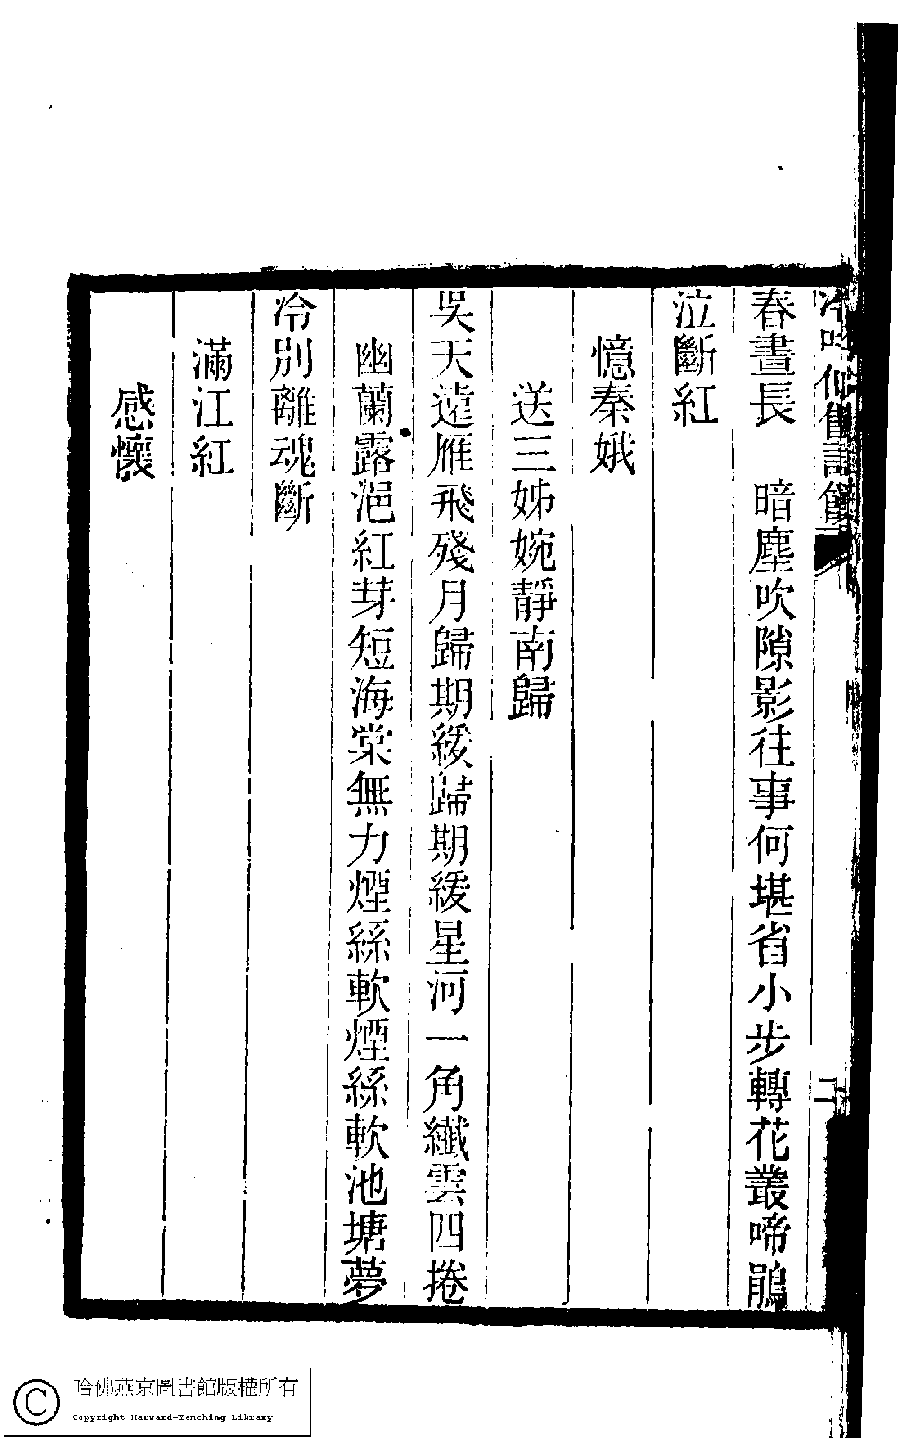 春晝長　暗塵吹隙影往事何堪省小步轉花叢啼鵑
泣斷紅
憶秦娥
送三姊婉靜南歸
吳天遠雁飛殘月歸期緩歸期緩星河一角纖雲四捲
幽蘭露浥紅芽短海棠無力煙絲軟煙絲軟池塘夢
冷別離魂斷
滿江紅
感懷
二
哈佛燕京圖書館版權所有
Copyright Harvard-Yenching Library